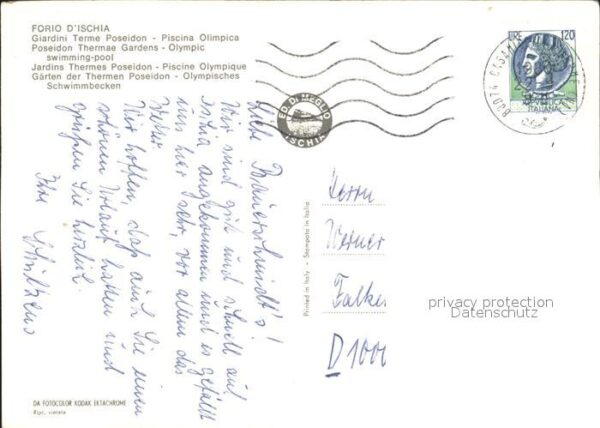 FORIO D'ISCHIA
Giardini Terme Poseidon - Piscina Olimpica
Poseidon Thermae Gardens - Olympic
swimming-pool
Jardins Thermes Poseidon - Piscine Olympique
Gärten der Thermen Poseidon - Olympisches
Schwimmbecken
L. 120
ITALIANE
80074 CASAMICCIOLA
ED. DI MEGLIO
ISCHIA
Liebe Bauerschmidt's!
Wir sind gut und schnell auf
Ischia angekommen und es gefällt
uns hier sehr, vor allem das
Wetter.
Wir hoffen, daß auch Sie einen
schönen Urlaub hatten und
grüßen Sie herzlich.
Ihre
Herrn
Werner
Falke
D 1000
Printed in Italy - Stampato in Italia
privacy protection
Datenschutz
DA FOTOCOLOR KODAK EKTACHROME
Ripr. vietata